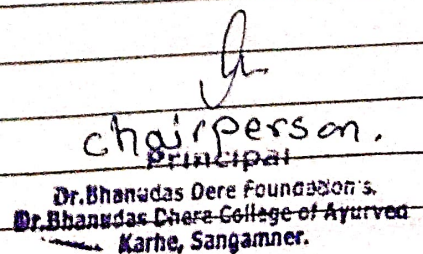 chairperson.
Principal
Dr.Bhanudas Dere Foundation's.
Dr.Bhanudas Dhere College of Ayurved
Karhe, Sangamner.